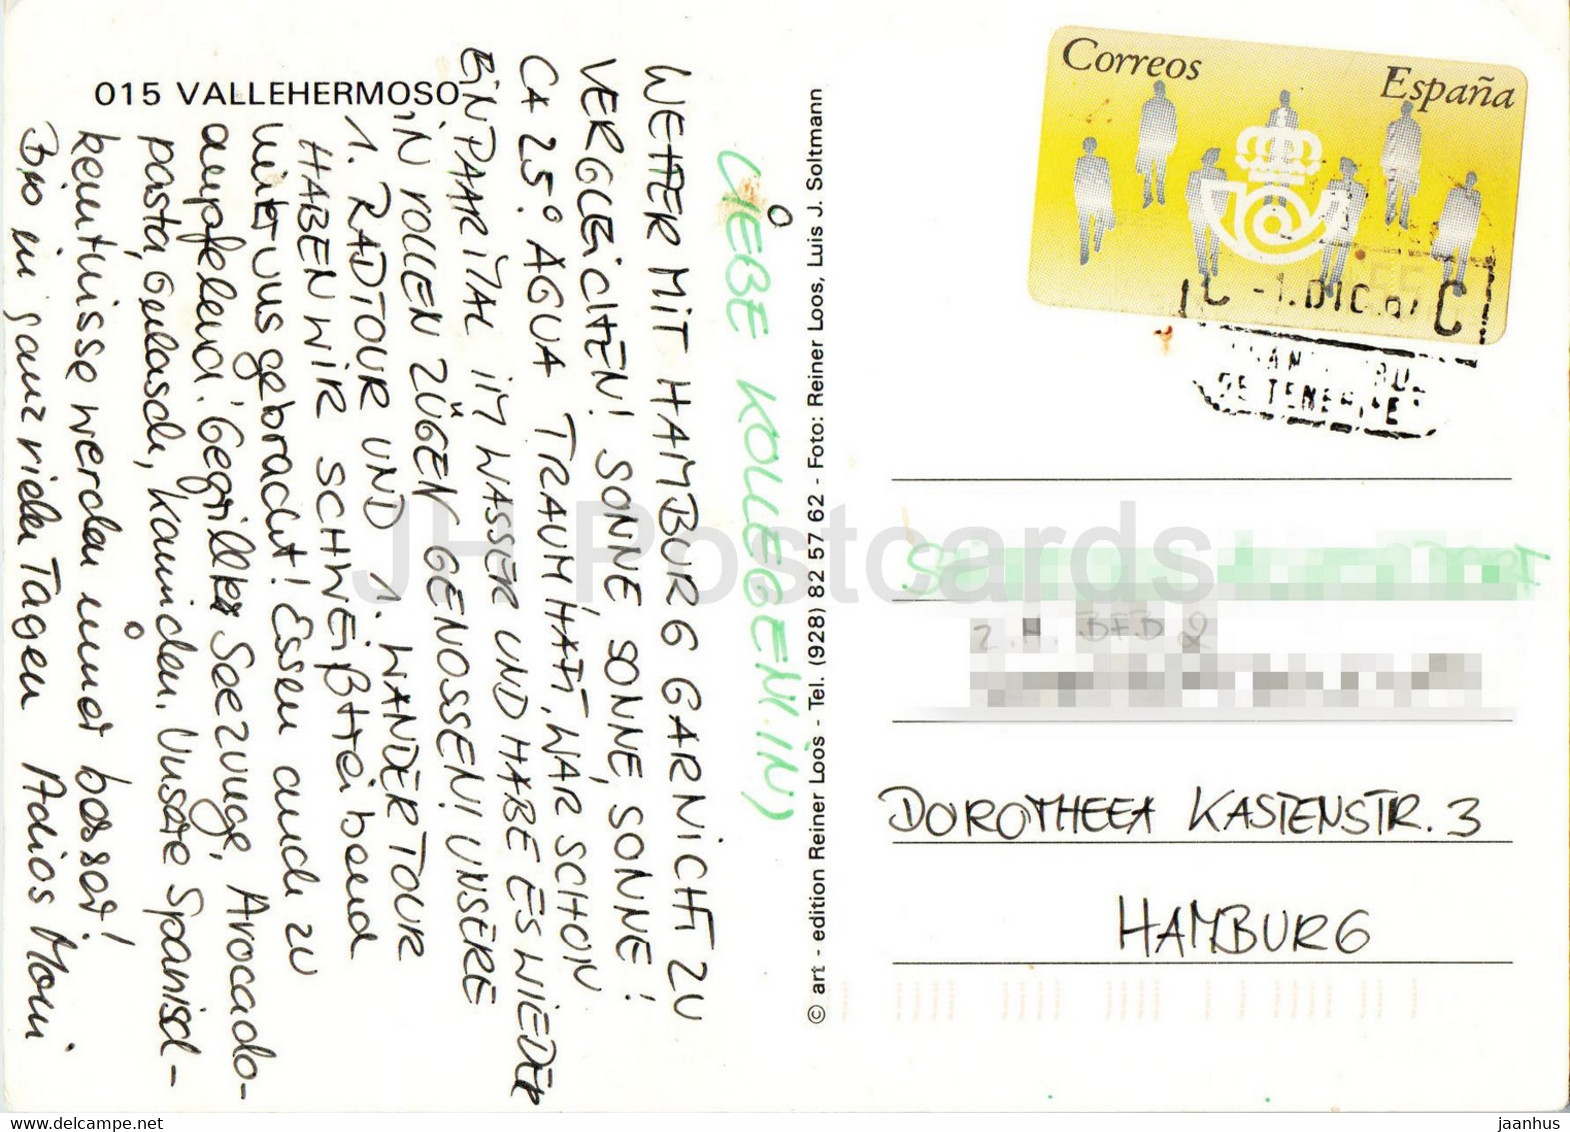 015 VALLEHERMOSO
LIEBE KOLLEGEN(INN)
WETTER MIT HAMBURG GARNICHT ZU
VERGLEICHEN! SONNE SONNE, SONNE!
CA 25° AGUA TRAUMHAFT, WAR SCHON
EIN PAAR MAL IM WASSER UND HABE ES WIEDER
IN VOLLEN ZÜGEN GENOSSEN! UNSERE
1. RADTOUR UND 1. WANDERTOUR
HABEN WIR SCHWEIßtreibend
mit uns gebracht! Essen auch zu
empfehlend! Gegrillte Seezunge, Avocado-
pasta, Gulasch, Kaninchen. Unsere Spanisch-
kenntnisse werden immer besser!
Bis in ganz vielen Tagen Adios Moni
© art - edition Reiner Loos - Tel. (928) 82 57 62 - Foto: Reiner Loos, Luis J. Soltmann
Correos España
-1.DIC
DE TENERIFE
Z.H. BFB &
DOROTHEEA KASTENSTR. 3
HAMBURG
JH Postcards
jaanhus
delcampe.net